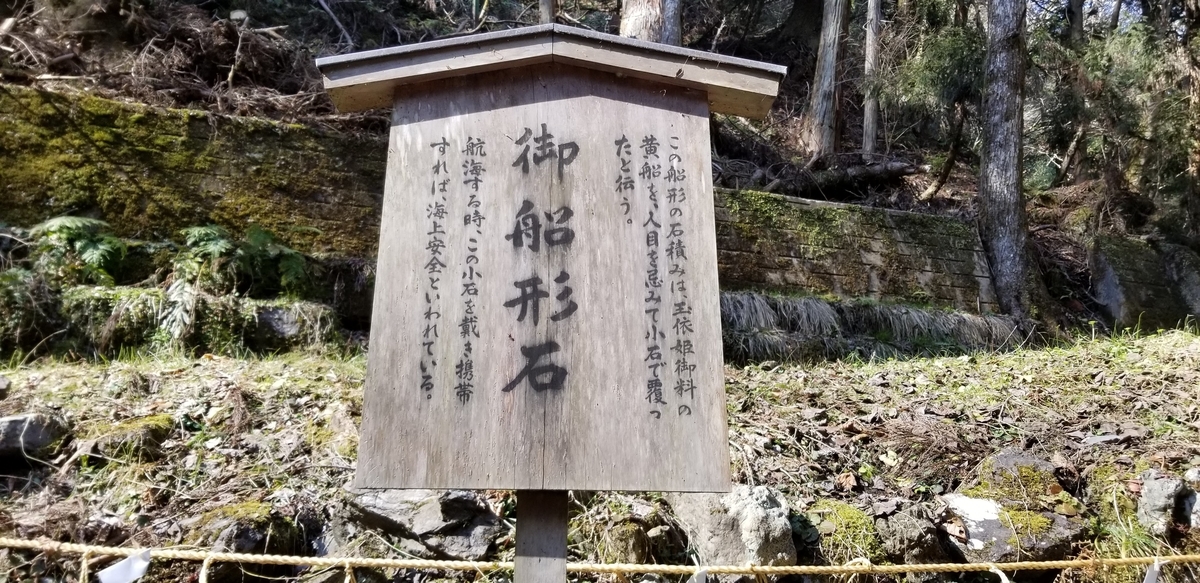 この船形の石積みは玉依姫御料の
黄船を、人目を忌みて小石で覆っ
たと伝う。
御船形石
航海する時、この小石を戴き携帯
すれば、海上安全といわれている。